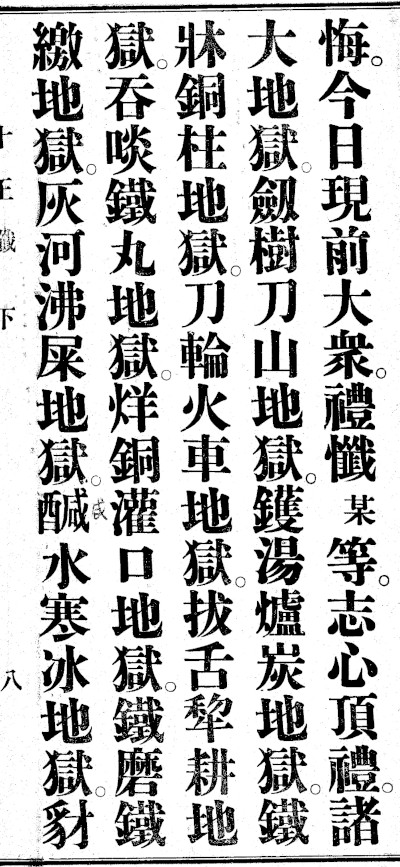 悔。今日現前大衆。禮懺某等。志心頂禮。諸
大地獄。劒樹刀山地獄。鑊湯爐炭地獄。鐵
牀銅柱地獄。刀輪火車地獄。拔舌犂耕地
獄。吞啖鐵丸地獄。烊銅灌口地獄。鐵磨鐵
繳地獄。灰河沸屎地獄。醎水寒冰地獄。豺
十王懺下 八